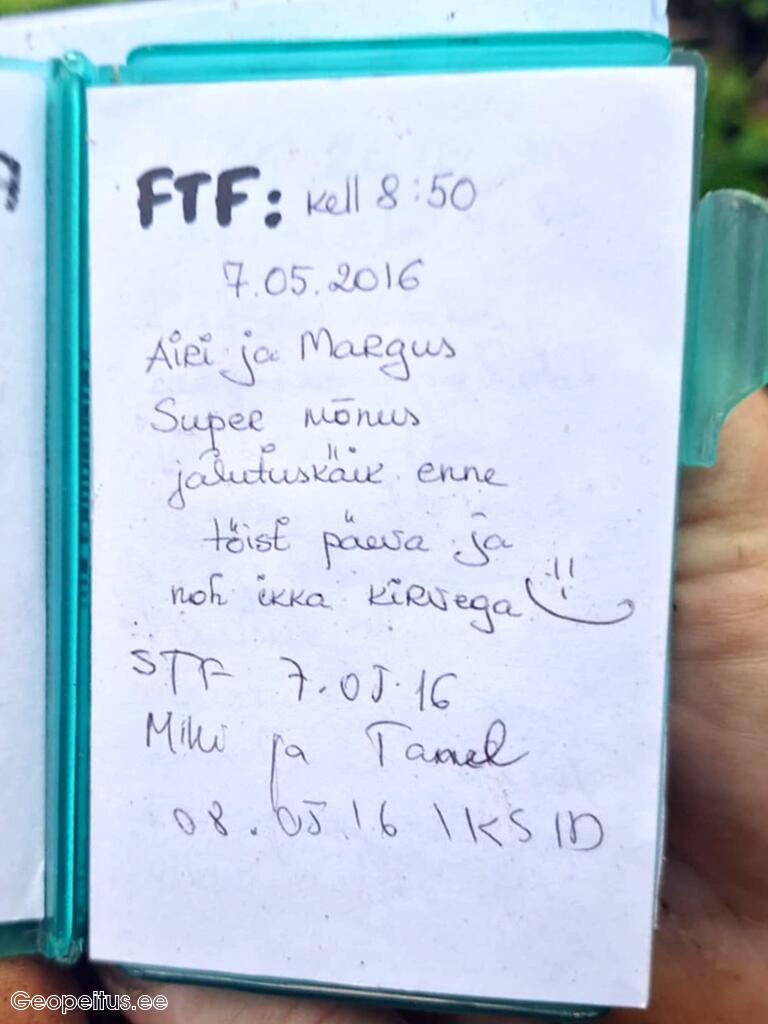 FTF: kell 8:50
7.05.2016
Airi ja Margus
Super mõnus
jalutuskäik enne
tööist päeva ja
noh ikka kirvega
STF 7.05.16
Miki ja Tanel
08.05.16 IKSID
Geopeitus.ee